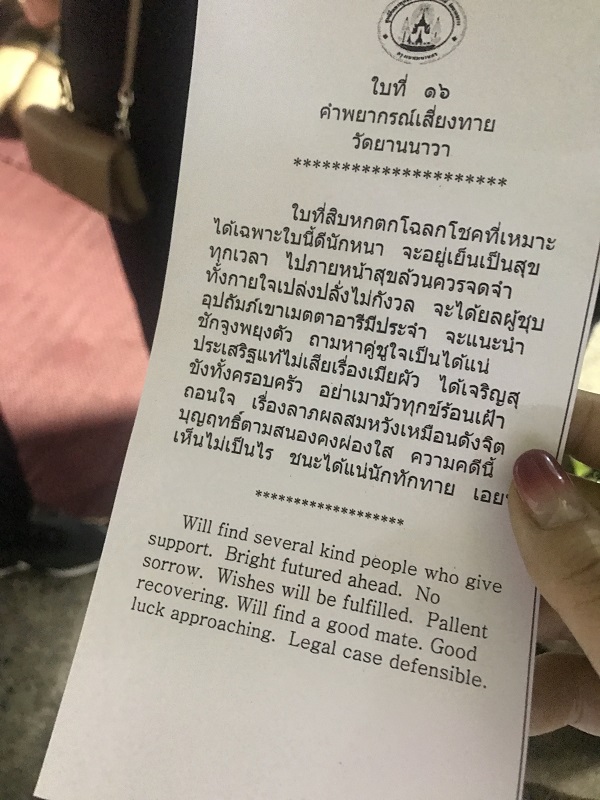 ใบที่ ๑๖
คำพยากรณ์เสี่ยงทาย
วัดยานนาวา
*********************
ใบที่สิบหกตกโฉลกโชคที่เหมาะ
ได้เฉพาะใบนี้ดีนักหนา จะอยู่เย็นเป็นสุข
ทุกเวลา ไปภายหน้าสุขล้วนควรจดจำ
ทั้งกายใจเปล่งปลั่งไม่กังวล จะได้ยลผู้ชุบ
อุปถัมภ์เขาเมตตาอารีมีประจำ จะแนะนำ
ชักจูงพยุงตัว ถามหาคู่ชูใจเป็นได้แน่
ประเสริฐแท้ไม่เสียเรื่องเมียผัว ได้เจริญสุ
ขังทั้งครอบครัว อย่าเมามัวทุกข์ร้อนเฝ้า
ถอนใจ เรื่องลาภผลสมหวังเหมือนดังจิต
บุญฤทธิ์ตามสนองคงผ่องใส ความคดีนี้
เห็นไม่เป็นไร ชนะได้แน่นักทักทาย เอย
*******************
Will find several kind people who give
support. Bright futured ahead. No
sorrow. Wishes will be fulfilled. Pallent
recovering. Will find a good mate. Good
luck approaching. Legal case defensible.